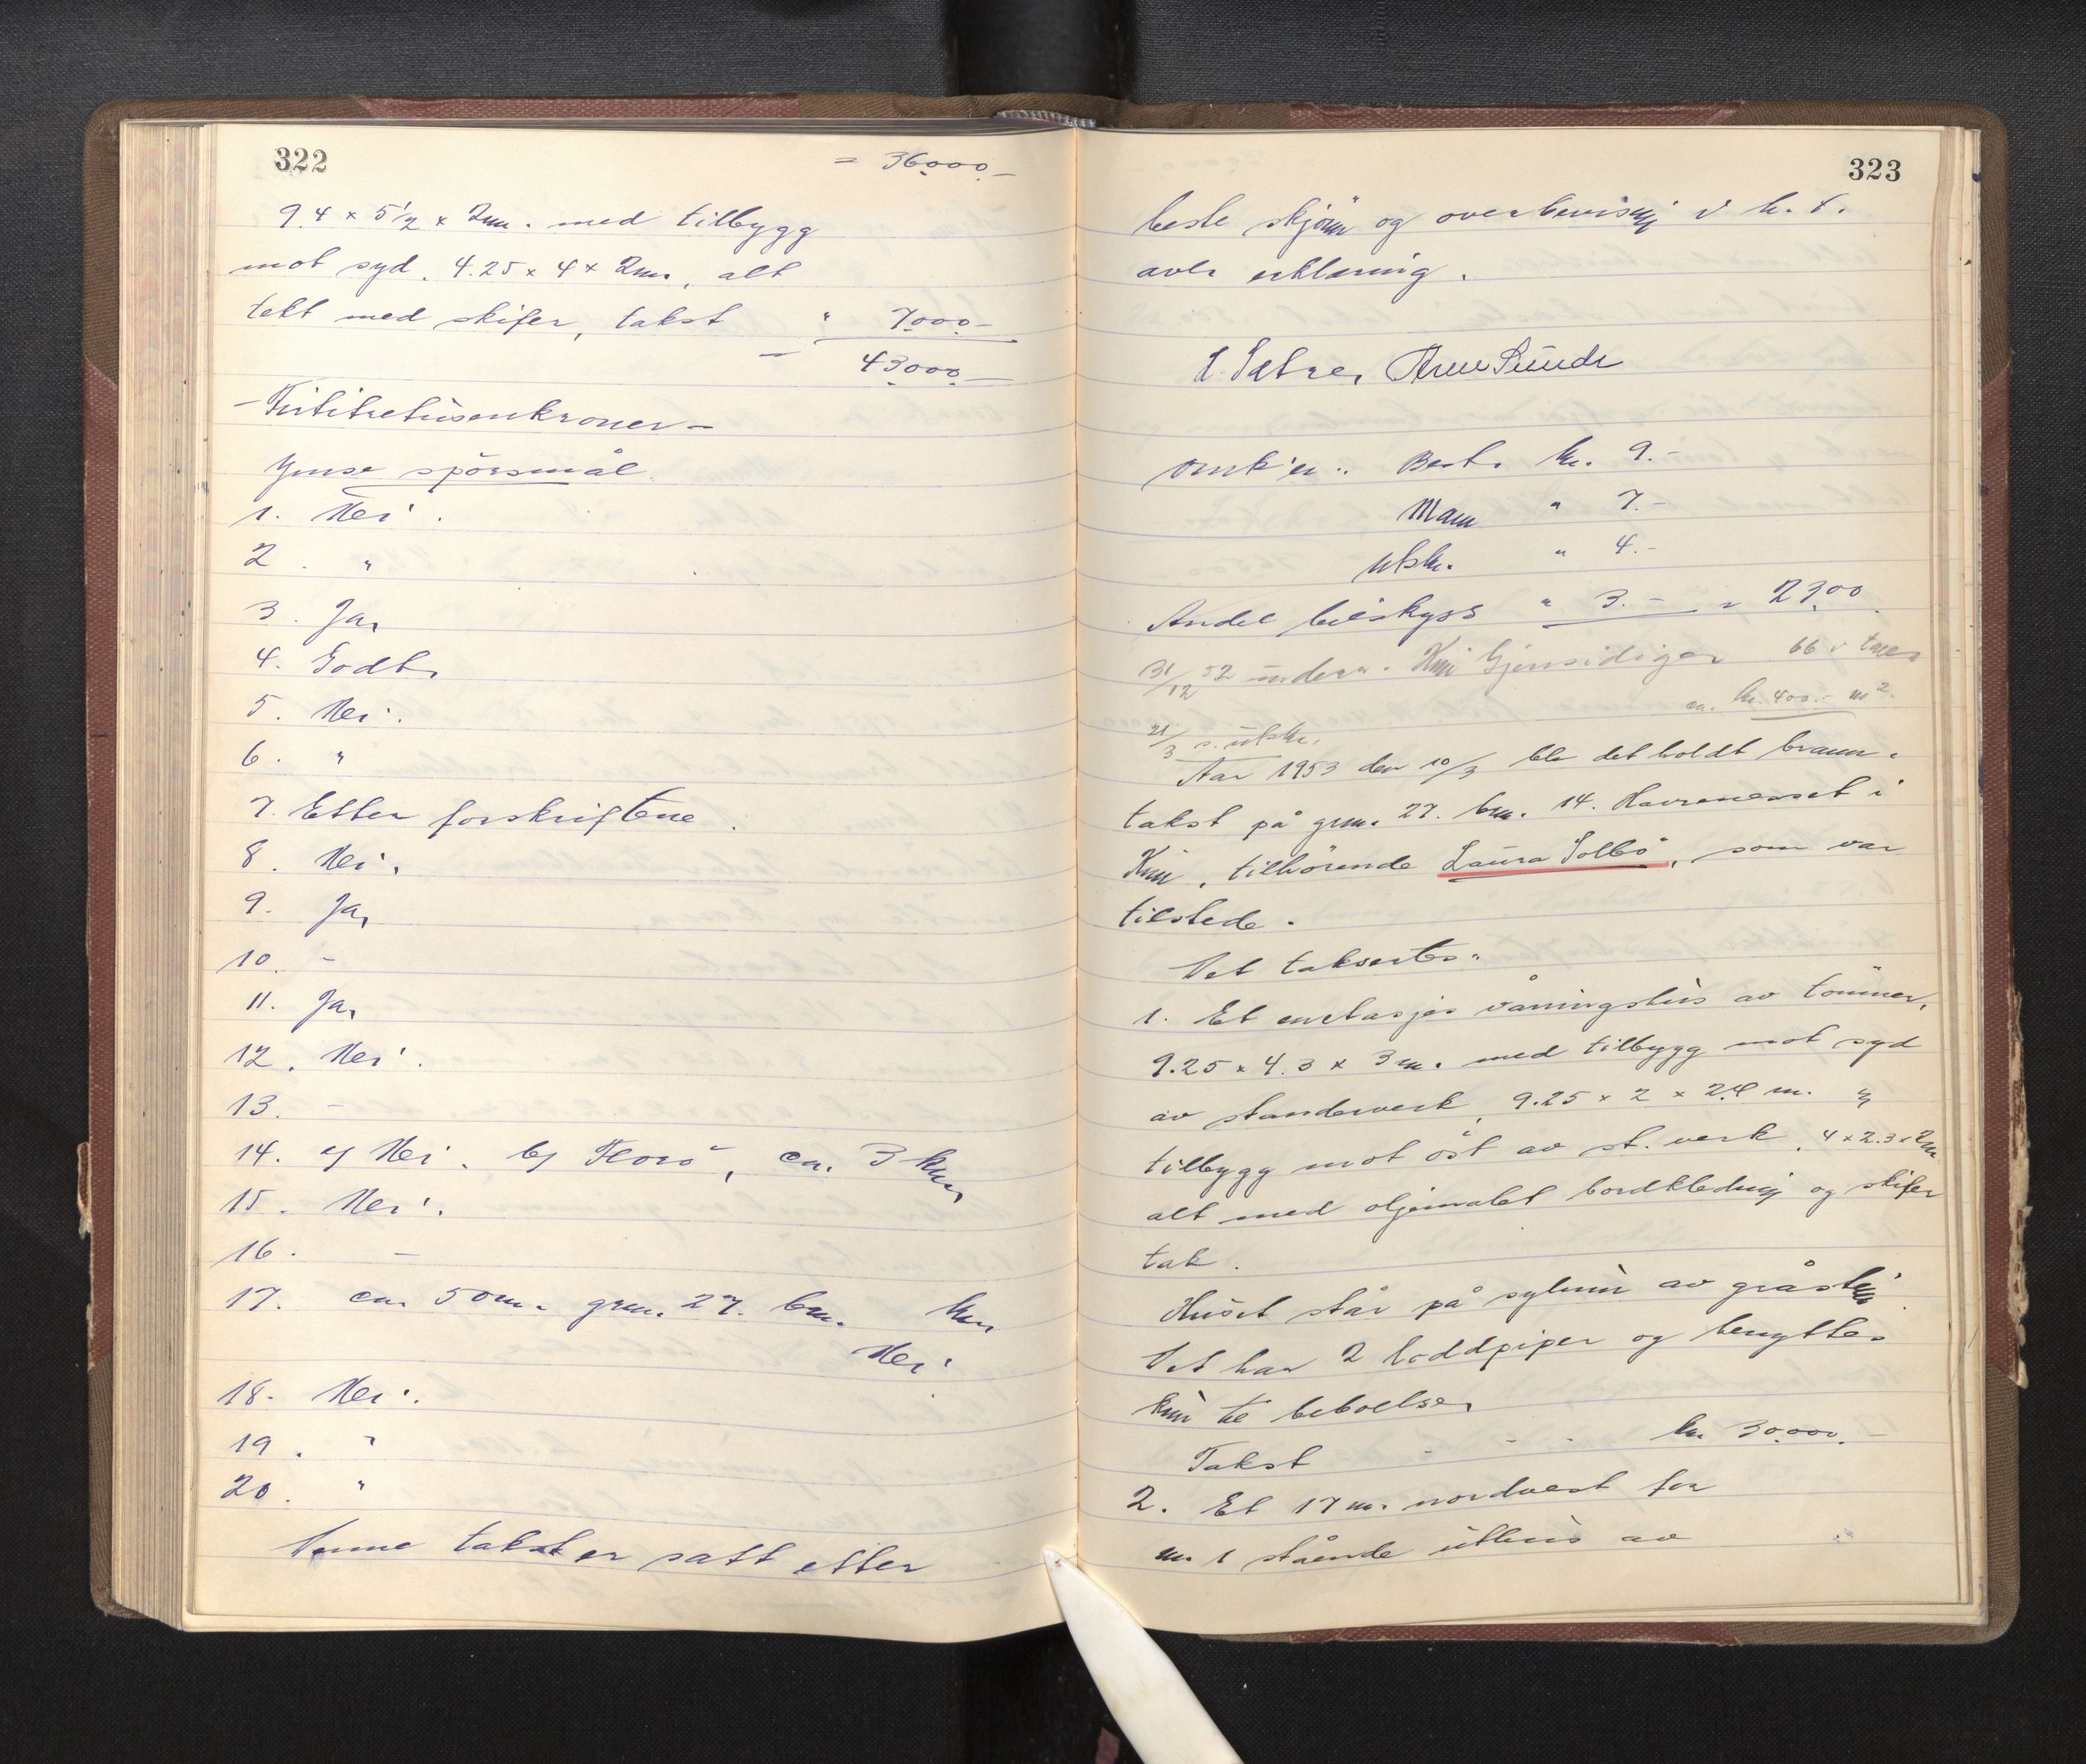 322
= 36000.-
9.4 x 5 1/2 x 2m. med tilbygg
mot syd. 4.25 x 4 x 2m., alt
tekt med skifer, takst " 7000.-
43000.-
- Förtitretusenkroner -
Ymse spörsmål
1. Nei.
2. "
3. Ja,
4. Godt.
5. Nei.
6. "
7. Etter forskriftene.
8. Nei.
9. Ja,
10. -
11. Ja,
12. Nei.
13. -
14. a/ Nei. b/ Florö, ca. 3 km
15. Nei.
16. -
17. ca. 50 m. grn. 27. bnr.
Nei
18. Nei.
19. "
20. "
Denne takst er satt etter
323
beste skjönn og overbevisning i h. t.
avlr erklæring.
Arne Sunde
Omk'er: Best. kr. 9.-
Mann " 7.-
Utskr. " 4.-
Andel bilskyss " 3.- = 23.00
31/12 52 Kinn Gjensidige
kr. 400.- m2.
21/3 s. utskr.
Aar 1953 den 10/3 ble det holdt brann-
takst på grn. 27. bnr. 14. Havrenesset i
Kinn, tilhörende Laura Solbö, som var
tilstede.
Det taksertes:
1. Et enetasjes våningshus av tömmer,
9.25 x 4.3 x 3 m. med tilbygg mot syd
av standerverk, 9.25 x 2 x 2.4 m. og
tilbygg mot öst av st. verk. 4 x 2.3 x 2m
alt med oljemalet bordkledning og skifer
tak.
Huset står på sylmur av gråstein.
Det har 2 loddpiper og benyttes
kun til beboelse,
Takst - - - kr. 30.000.-
2. Et 17 m. nordvest for
nr. 1 stående uthus av